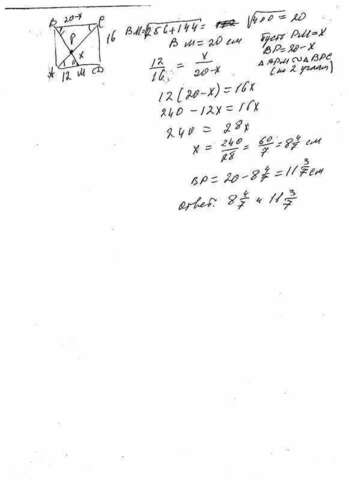 B 20-x C
P
x
16
A 12 M D
BM = √256+144 = √400 = 20
BM = 20 см
Пусть PM = x
BP = 20-x
△APM ∾ △BPC
(по 2 углам)
12/16 = x/20-x
12(20-x) = 16x
240 - 12x = 16x
240 = 28x
x = 240/28 = 60/7 = 8 4/7 см
BP = 20 - 8 4/7 = 11 3/7 см
Ответ: 8 4/7 и 11 3/7